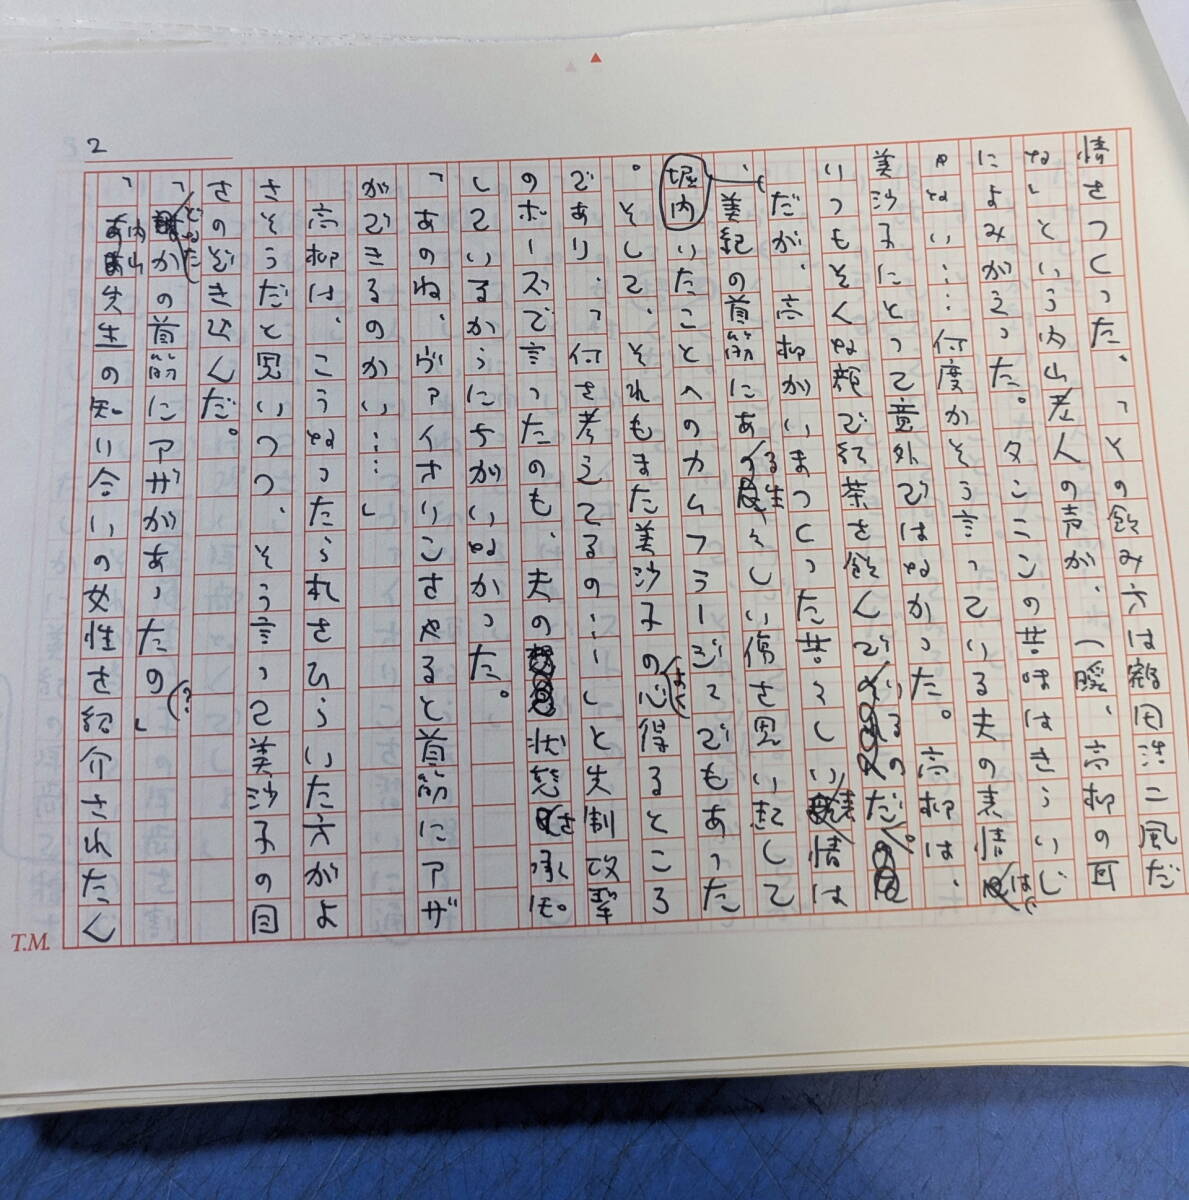 2
情をつくった。「その飲み方は鶴田浩二風だ
ないという内山老人の声が、一瞬、高柳の耳
によみがえった。タンニンの苦味はきらいじ
ゃない……何度かそう言っている夫の表情は、
美沙子にとって意外ではなかった。高柳は、
いつもそんな顔で紅茶を飲んでいるのだ。
だが、高柳がいまつくった苦々しい表情は
、美紀の首筋にある生々しい傷を思い起して
堀内いたことへのカムフラージュでもあった
。そして、それもまた美沙子のよく心得るところ
であり、「何を考えてるの…」と先制攻撃
のポーズで言ったのも、夫の状態を承知
しているからにちがいなかった。
「あのね、ヴァイオリンをやると首筋にアザ
ができるのかい……」
高柳は、こうなったられをひらいた方がよ
さそうだと思いつつ、そう言って美沙子の目
をのぞきこんだ。
「どなたかの首筋にアザがあったの(?)」
「内山先生の知り合いの女性を紹介されたん
T.M.